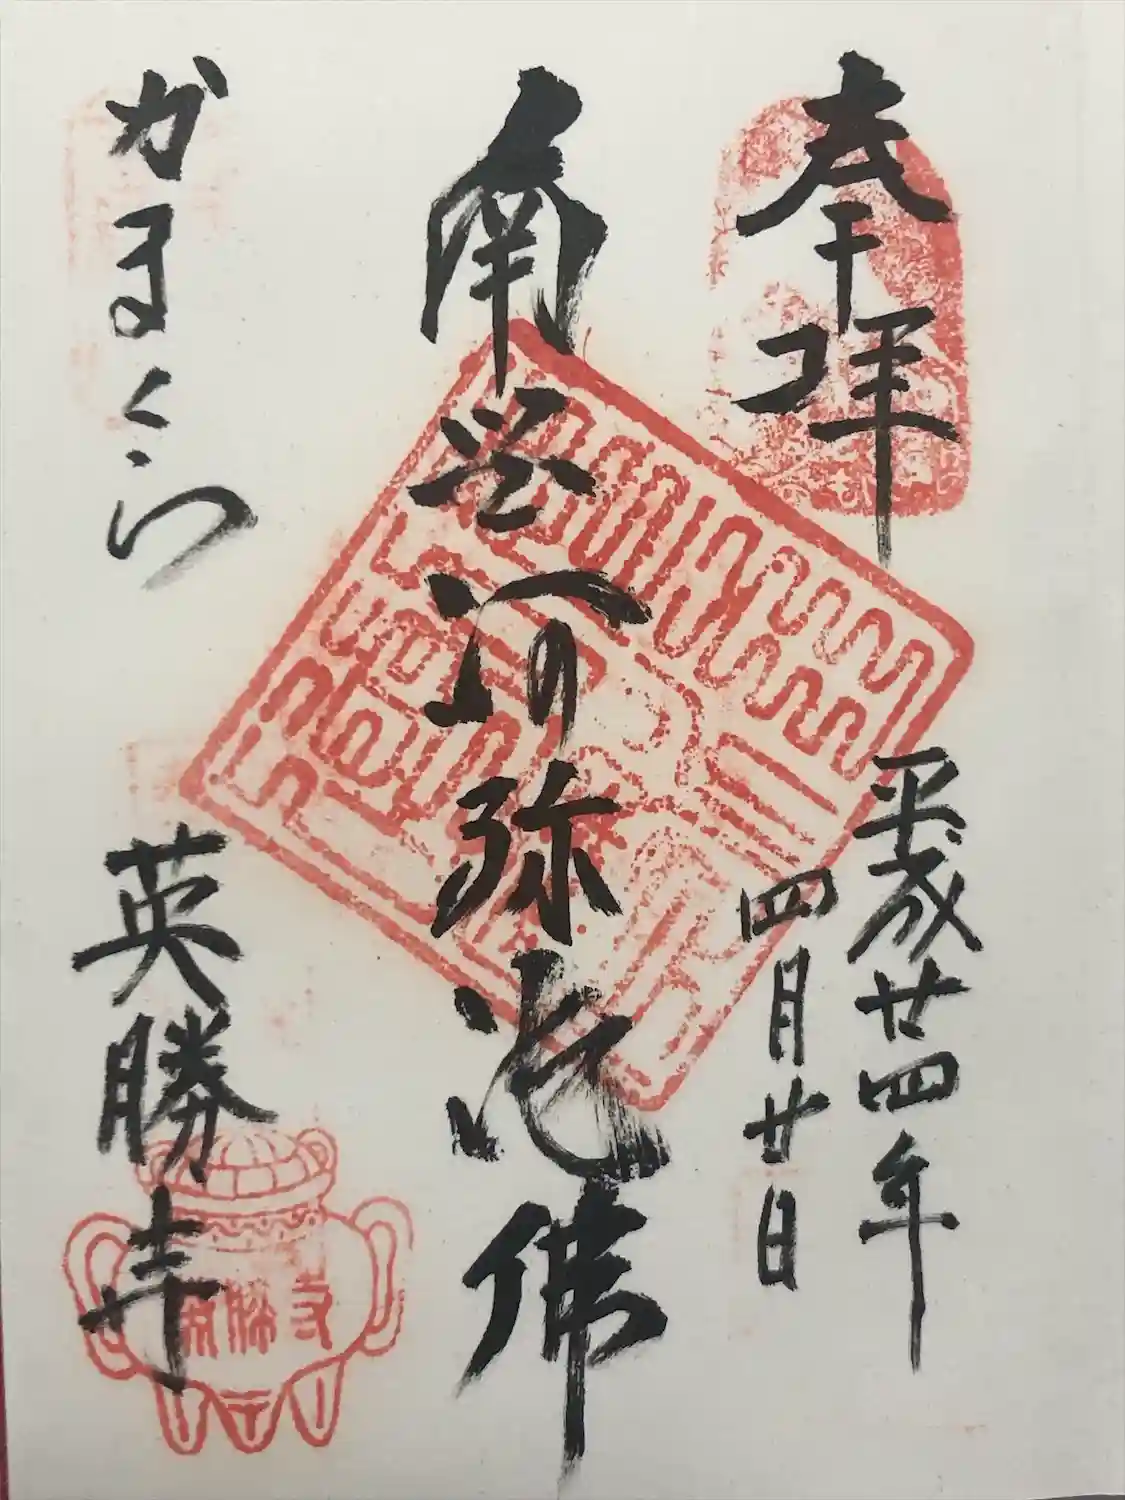 奉拝
平成廿四年
四月廿日
南無阿弥陀佛
かまくら
英勝寺
英勝寺